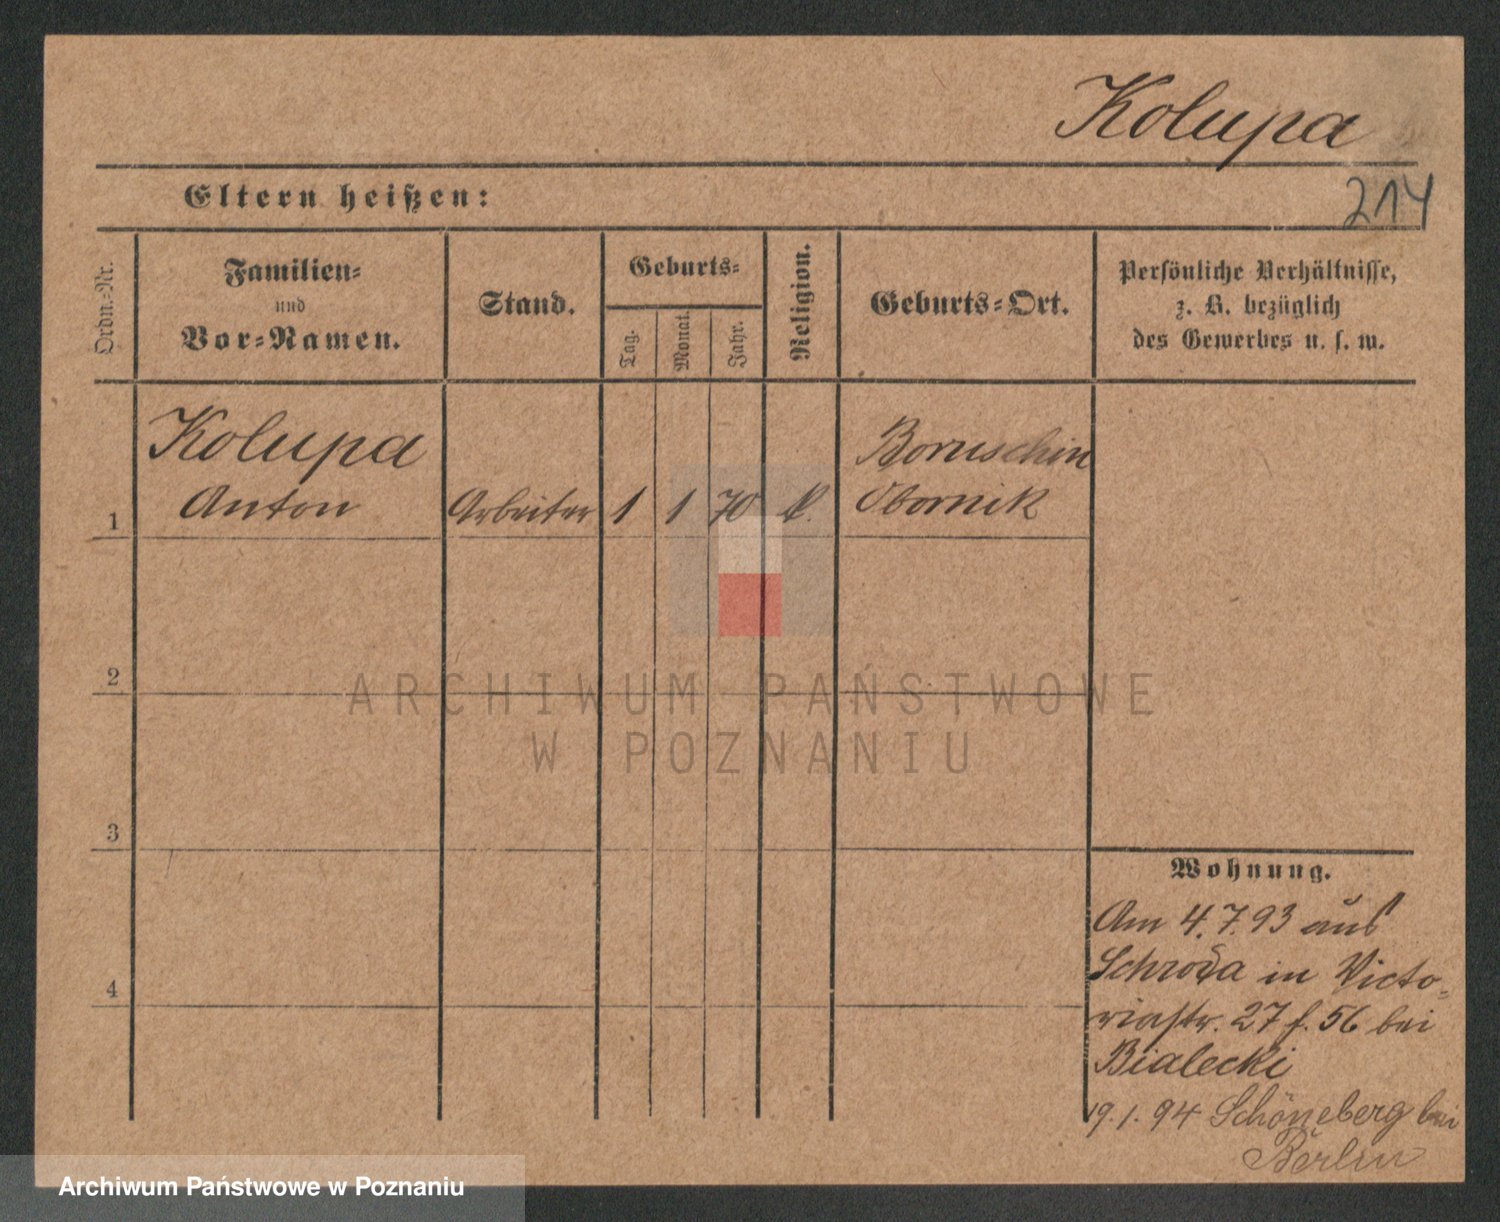 Kolupa
Eltern heißen:
214
Ordn.-Nr.
Familien-
und
Vor-Namen.
Stand.
Geburts-
Tag.
Monat.
Jahr.
Religion.
Geburts-Ort.
Persönliche Verhältnisse,
z. B. bezüglich
des Gewerbes u. s. w.
Kolupa
Boruschin
1 Anton Arbeiter 1 1 70 k. Obornik
2
ARCHIWUM PAŃSTWOWE
W POZNANIU
3
Wohnung.
Am 4.7.93 aus
Schroda in Victo-
riastr. 27 f. 56 bei
Bialecki
4
19.1.94 Schöneberg bei
Berlin
Archiwum Państwowe w Poznaniu